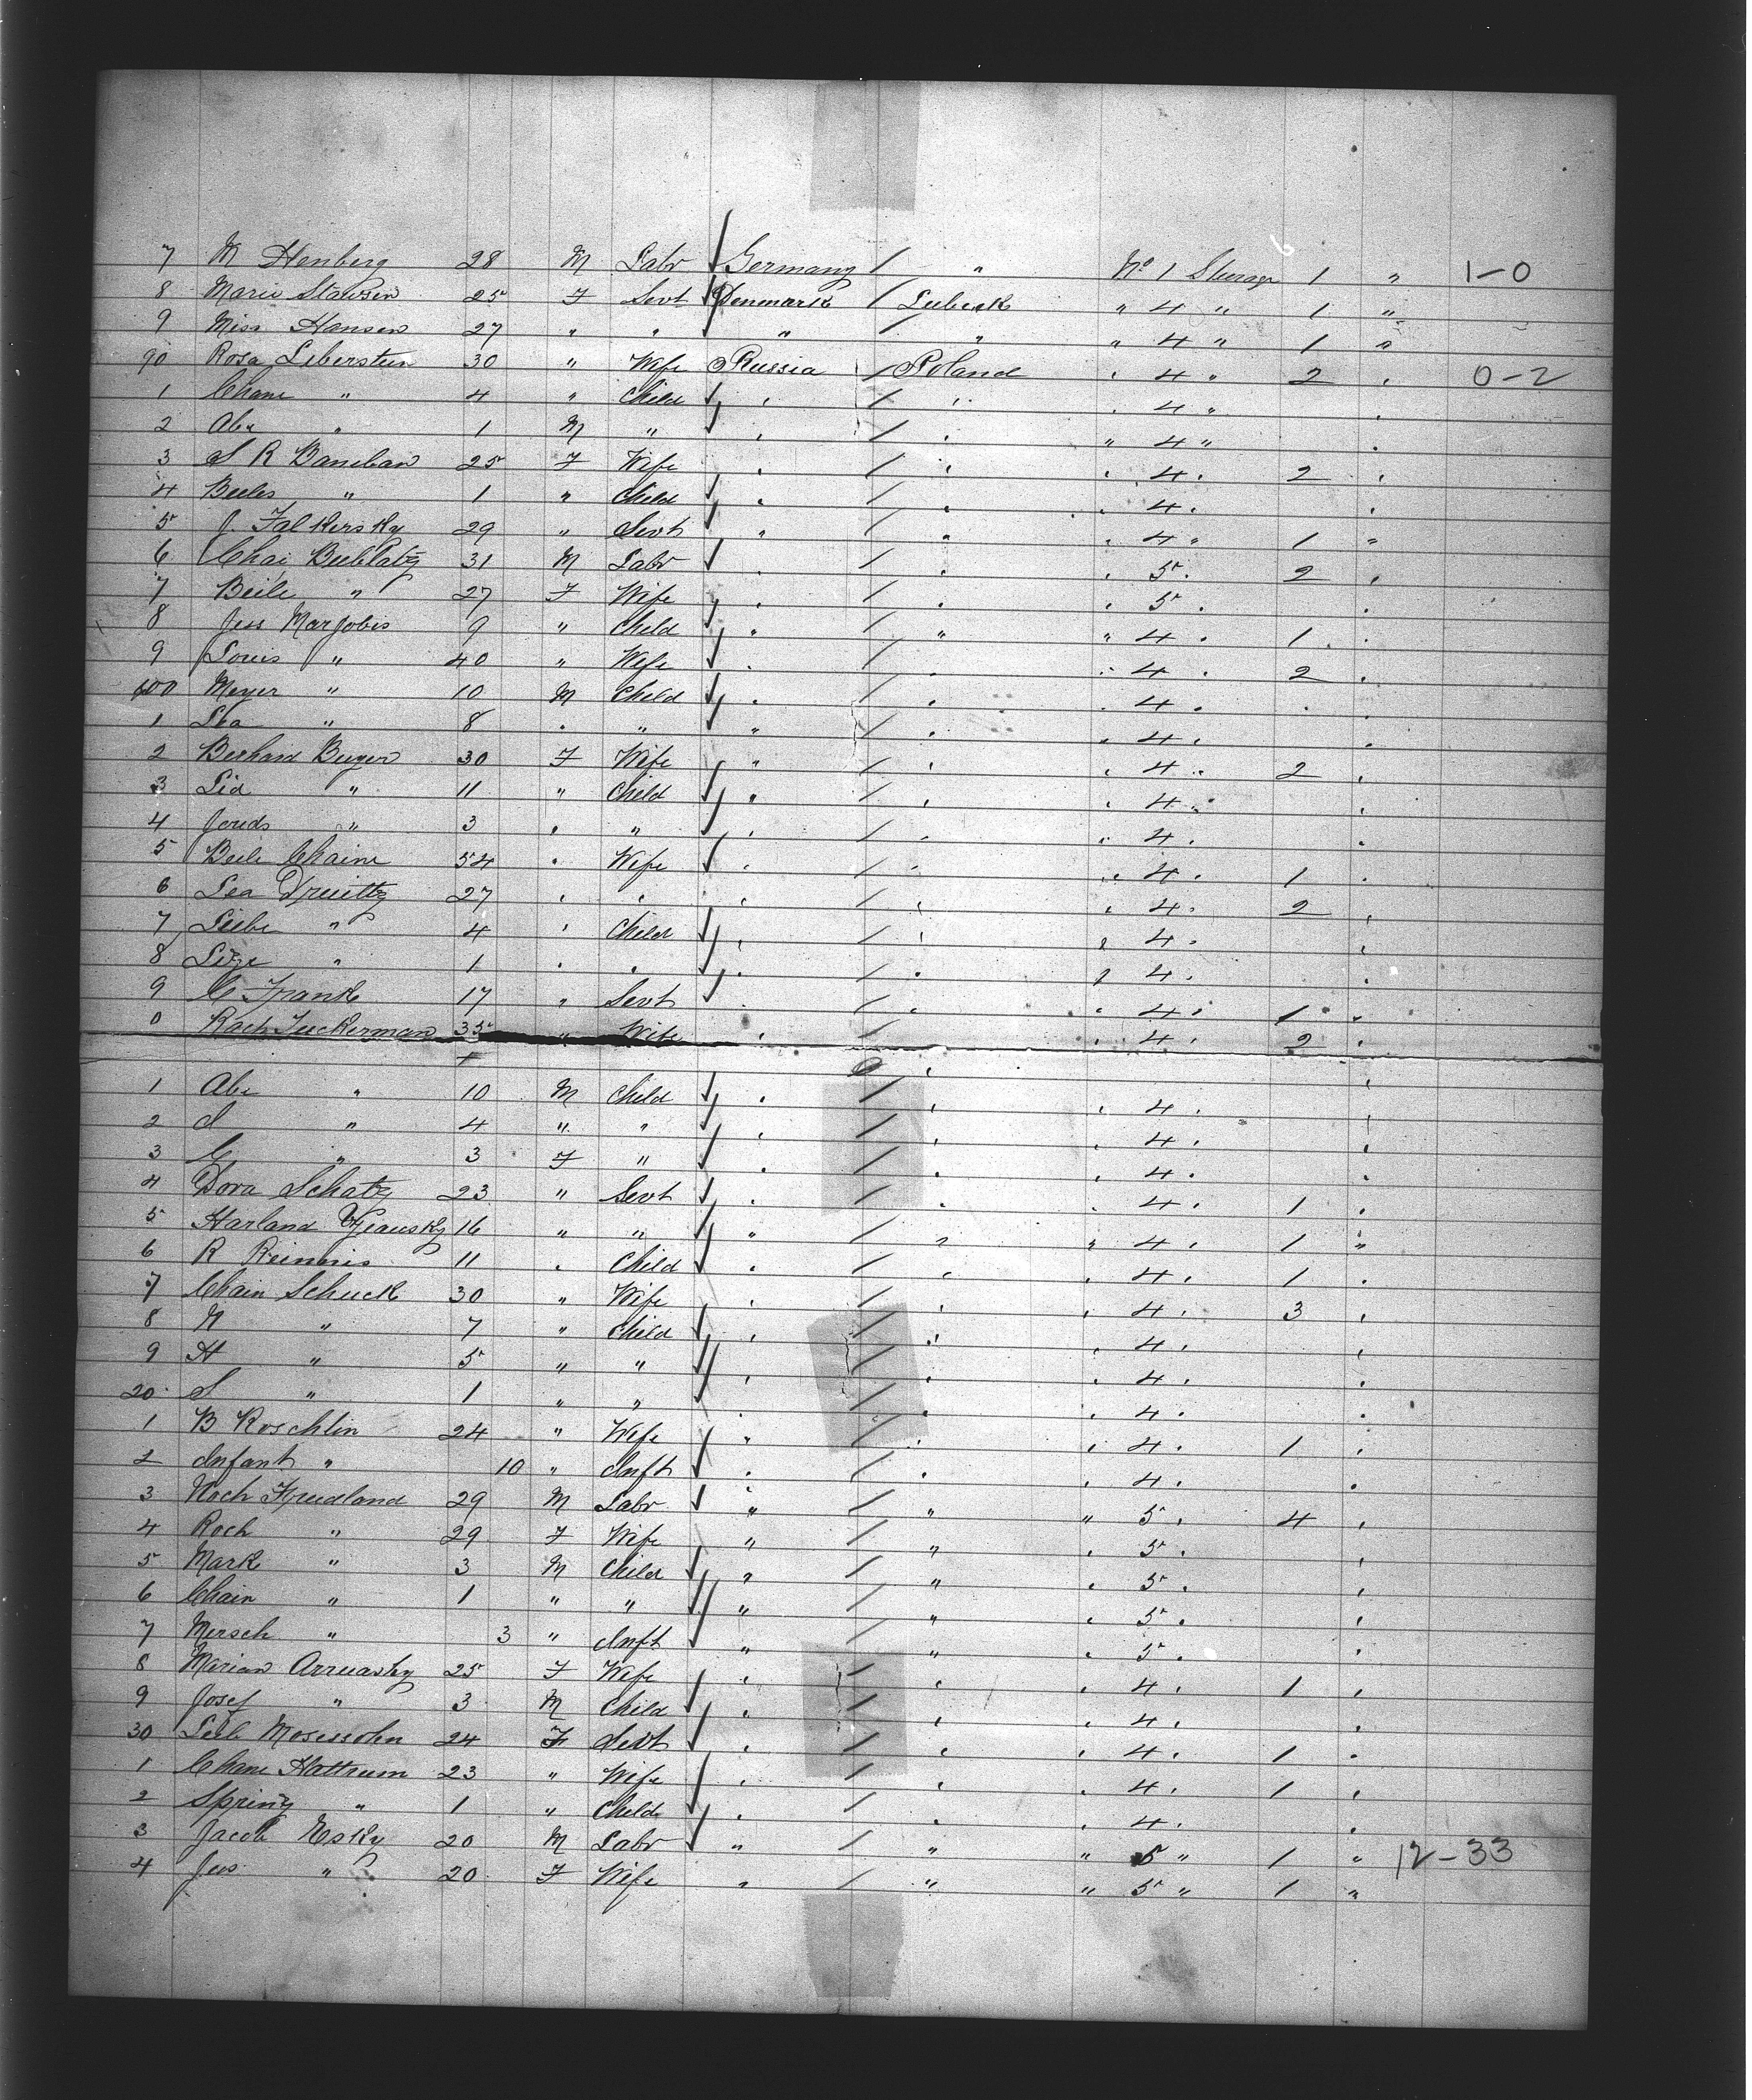 7 M Henberg 28 M Labr Germany / " No 1 Sterage 1 " 1-0
8 Marie Stawsen 25 F Sevt Denmark / Lubeck " 4 " 1 "
9 Miss Hansen 27 " " " / " " 4 " 1 "
90 Rosa Liberstein 30 " Wife Russia / Poland " 4 " 2 " 0-2
1 Chane " 4 " Child " / " " 4 " "
2 Abr " 1 M " " / " " 4 " "
3 S R Baneban 25 F Wife " / " " 4 " 2 "
4 Beeles " 1 " Child " / " " 4 " "
5 J. Falkersky 29 " Sevt " / " " 4 " 1 "
6 Chai 31 M Labr " / " " 5 " 2 "
7 Beile " 27 F Wife " / " " 5 " "
8 Jess Marjobes 9 " Child " / " " 4 " 1 "
9 Louis " 40 " Wife " / " " 4 " 2 "
400 Meyer " 10 M Child " / " " 4 " "
1 Lea " 8 " " " / " " 4 " "
2 Berhard Beyer 30 F Wife " / " " 4 " 2 "
3 Lia " 11 " Child " / " " 4 " "
4 " 3 " " " / " " 4 " "
5 Beile Chaine 54 " Wife " / " " 4 " 1 "
6 Lea 27 " " " / " " 4 " 2 "
7 Liebe " 4 " Child " / " " 4 " "
8 Lize " 1 " " " / " " 4 " "
9 C Frank 17 " Sevt " / " " 4 " 1 "
0 Rach Tuckerman 35 " Wife " / " " 4 " 2 "
1 Abr " 10 M Child " / " " 4 " "
2 S " 4 " " " / " " 4 " "
3 C " 3 F " " / " " 4 " "
4 Dora Schatz 23 " Sevt " / " " 4 " 1 "
5 Harland 16 " " " / " " 4 " 1 "
6 R Reinnis 11 " Child " / " " 4 " 1 "
7 Chain Schuck 30 " Wife " / " " 4 " 3 "
8 M " 7 " Child " / " " 4 " "
9 H " 5 " " " / " " 4 " "
20 S " 1 " " " / " " 4 " "
1 B Roschlin 24 " Wife " / " " 4 " 1 "
2 Infant " 10 " Inft " / " " 4 " "
3 Noch Freidland 29 M Labr " / " " 5 " 4 "
4 Roch " 29 F Wife " / " " 5 " "
5 Mark " 3 M Child " / " " 5 " "
6 Chain " 1 " " " / " " 5 " "
7 Mersch " 3 " Inft " / " " 5 " "
8 Marian Arruasky 25 F Wife " / " " 4 " 1 "
9 Josef " 3 M Child " / " " 4 " "
30 Leib Mosessohn 24 F Sevt " / " " 4 " 1 "
1 Chane Hattrum 23 " Wife " / " " 4 " 1 "
2 Sprinz " 1 " Child " / " " 4 " "
3 Jacob Esky 20 M Labr " / " " 5 " 1 " 12-33
4 Jes " 20 F Wife " / " " 5 " 1 "